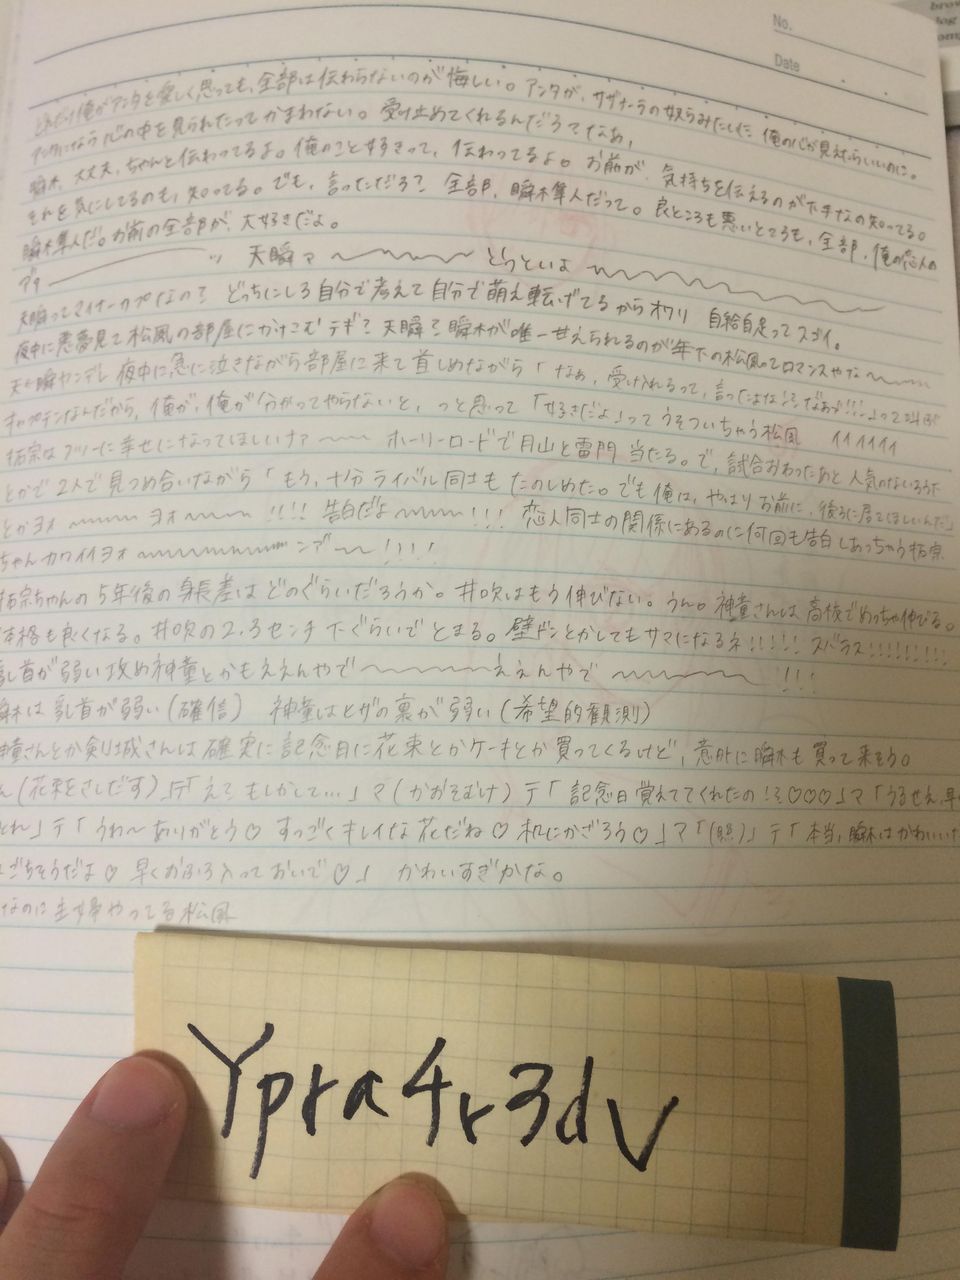 No.
Date
どれだけ俺がアンタを愛しく思っても、全部は伝わらないのが悔しい。アンタが、サザナーラの奴らみたいに、俺の心が見えたらいいのに。
アンタになら心の中を見られたってかまわない。受け止めてくれるんだろてなぁ、
瞬木、大丈夫、ちゃんと伝わってるよ。俺のこと好きって、伝わってるよ。お前が、気持ちを伝えるのが下手なの知ってる。
それを気にしてるのも、知ってる。でも、言っただろ?全部、瞬木隼人だって。良ところも悪いところも、全部、俺の恋人の
瞬木隼人だ。お前の全部が、大好きだよ。
天瞬ァ〜〜〜 とうといよ 〜〜〜
天瞬ってマイナーカプなの?どっちにしろ自分で考えて自分で萌え転げてるからオワリ 自給自足ってスゴイ。
夜中に悪夢見て松風の部屋にかけこむ 天瞬?瞬木が唯一甘えられるのが年下の松風ってロマンスやな〜〜〜
天←瞬ヤンデレ 夜中に急に泣きながら部屋に来て首しめながら「なぁ、受け入れるって、言ったよな!?なあ!!!」って叫ぶ
キャプテンなんだから、俺が、俺が分かってやらないと、っと思って「好きだよ」ってうそついちゃう松風 イイイイイイ
拓宗はフツーに幸せになってほしいナァ〜〜 ホーリーロードで月山と雷門 当たる。で、試合おわったあと人気のないろうか
とかで2人で見つめ合いながら「もう、十分ライバル同士も たのしめた。でも俺は、やはりお前に、後ろに居てほしいんだ」
とかヨォ〜〜〜 ヨォ〜〜〜 !!!! 告白だよ〜〜〜!!! 恋人同士の関係にあるのに何回も告白しあっちゃう拓宗
ちゃんカワイイヨォ〜〜〜 ンア〜〜!!!!
拓宗ちゃんの5年後の身長差はどのぐらいだろうか。井吹はもう伸びない。うん。神童さんは高校でめっちゃ伸びる。
体格も良くなる。井吹の2.3センチ下ぐらいでとまる。壁ドンとかしてもサマになるネ!!!!!スバラス!!!!!!!!!
乳首が弱い攻め神童とかもええんやで〜〜〜ええんやで〜〜〜!!!
瞬木は乳首が弱い(確信) 神童はヒザの裏が弱い(希望的観測)
神童さんとか剣城さんは確実に記念日に花束とかケーキとか買ってくるけど、意外に瞬木も買って来そう。
ん(花束をさしだす)」テ「え?もしかして…」マ(かおそむけ)テ「記念日覚えててくれたの!?♡♡♡」マ「うるせえ、早
とれ」テ「うわ〜ありがとう♡ すっごくキレイな花だね♡ 机にかざろう♡」マ「(照)」テ「本当、瞬木はかわいいな
ごちそうだよ♡早くおふろ入っておいで♡」 かわいすぎかな。
なのに主婦やってる松風
Ypra4r3dV